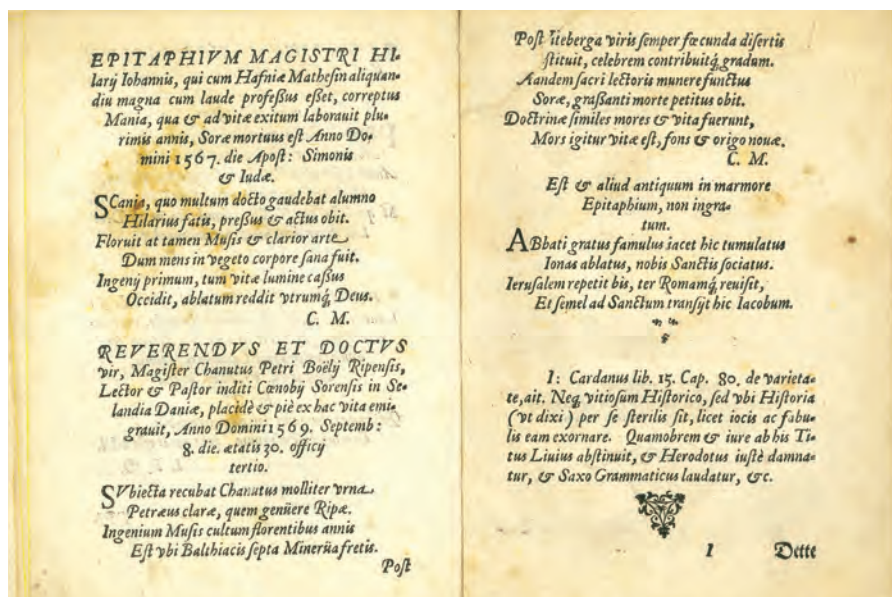 EPITAPHIVM MAGISTRI HI-
larij Iohannis, qui cum Hafniæ Mathesin aliquan-
diu magna cum laude professus esset, correptus
Mania, qua & ad vitæ exitum laborauit plu-
rimis annis, Soræ mortuus est Anno Do-
mini 1567. die Apost: Simonis
& Iudæ.
SCania, quo multum docto gaudebat alumno
Hilarius fatis, pressus & actus obit.
Floruit at tamen Musis & clarior arte
Dum mens in vegeto corpore sana fuit.
Ingenij primum, tum vitæ lumine cassus
Occidit, ablatum reddit vtrumq́; Deus.
C. M.
REVERENDVS ET DOCTVS
vir, Magister Chanutus Petri Boëlij Ripensis,
Lector & Pastor inditi Cœnobij Sorensis in Se-
landia Daniæ, placidè & piè ex hac vita emi-
grauit, Anno Domini 1569. Septemb:
8. die. ætatis 30. officij
tertio.
SVbiecta recubat Chanutus molliter vrna
Petræus claræ, quem genüere Ripæ.
Ingenium Musis cultum florentibus annis
Est vbi Balthiacis septa Minerüa fretis.
Post
Post iteberga viris semper fœcunda disertis
stituit, celebrem contribuitq́; gradum.
Aandem sacri lectoris munere functus
Soræ, grassanti morte petitus obit.
Doctrinæ similes mores & vita fuerunt,
Mors igitur vitæ est, fons & origo nouæ.
C. M.
Est & aliud antiquum in marmore
Epitaphium, non ingra-
tum.
ABbati gratus famulus iacet hic tumulatus
Ionas ablatus, nobis Sanctis sociatus.
Ierusalem repetit bis, ter Romamq́; reuisit,
Et semel ad Sanctum transijt hic Iacobum.
I: Cardanus lib. 15. Cap. 80. de varieta-
te, ait. Neq́; vitiosum Historico, sed vbi Historia
(vt dixi) per se sterilis sit, licet iocis ac fabu-
lis eam exornare. Quamobrem & iure ab his Ti-
tus Liuius abstinuit, & Herodotus iustè damna-
tur, & Saxo Grammaticus laudatur, &c.
I Dette